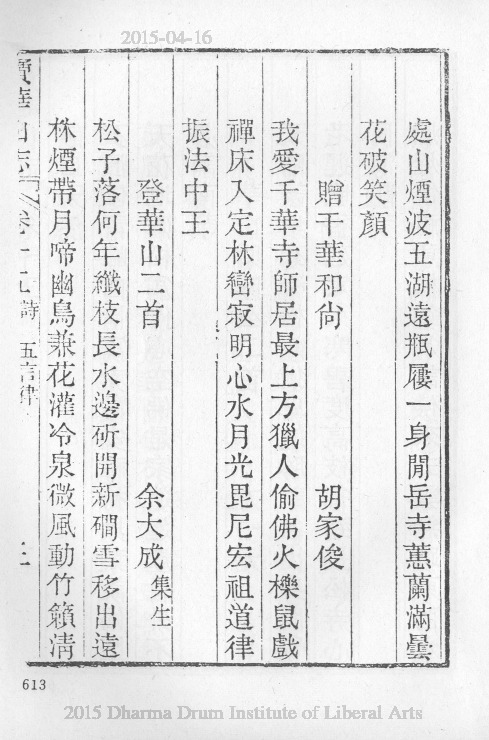 2015-04-16
處山煙波五湖遠瓶屨一身閒岳寺蕙蘭滿曇
花破笑顏
贈千華和尙 胡家俊
我愛千華寺師居最上方獵人偷佛火櫟鼠戲
禪床入定林巒寂明心水月光毘尼宏祖道律
振法中王
登華山二首 余大成 集生
松子落何年纖枝長水邊斫開新磵雪移出遠
林煙帶月啼幽鳥兼花灌冷泉微風動竹籟淸
寶華山志 卷十 詩 五言律
613
2015 Dharma Drum Institute of Liberal Arts